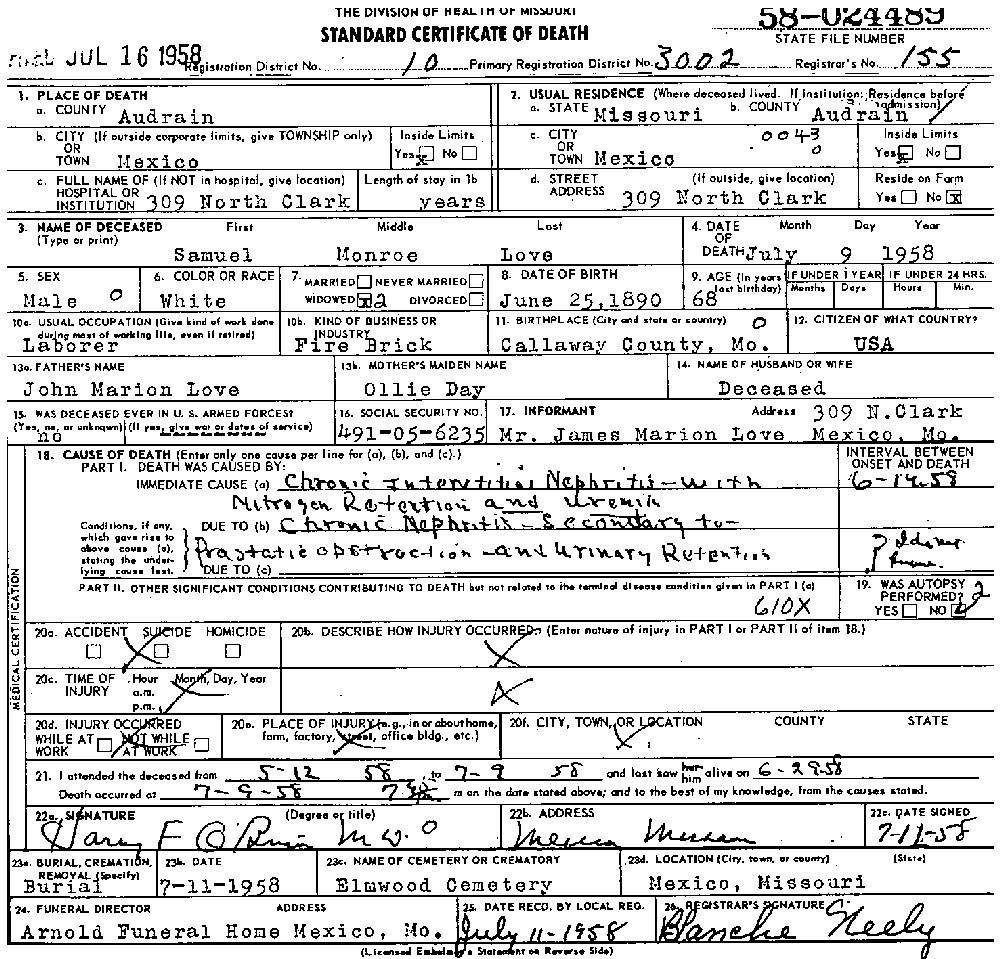 THE DIVISION OF HEALTH OF MISSOURI
STANDARD CERTIFICATE OF DEATH
58-024489
STATE FILE NUMBER
JUL 16 1958
Registration District No. 10 Primary Registration District No. 3002 Registrar's No. 155
1. PLACE OF DEATH
a. COUNTY Audrain
2. USUAL RESIDENCE (Where deceased lived. If institution: Residence before admission)
a. STATE Missouri b. COUNTY Audrain
b. CITY (If outside corporate limits, give TOWNSHIP only) OR TOWN Mexico
Inside Limits Yes X No
c. CITY OR TOWN Mexico 0043 0
Inside Limits Yes X No
c. FULL NAME OF (If NOT in hospital, give location) HOSPITAL OR INSTITUTION 309 North Clark
Length of stay in 1b years
d. STREET ADDRESS (If outside, give location) 309 North Clark
Reside on Farm Yes No X
3. NAME OF DECEASED (Type or print) First Middle Last
Samuel Monroe Love
4. DATE OF DEATH Month Day Year
July 9 1958
5. SEX Male 0
6. COLOR OR RACE White
7. MARRIED NEVER MARRIED WIDOWED X 2 DIVORCED
8. DATE OF BIRTH June 25,1890
9. AGE (In years last birthday) 68
IF UNDER 1 YEAR Months Days
IF UNDER 24 HRS. Hours Min.
10a. USUAL OCCUPATION (Give kind of work done during most of working life, even if retired) Laborer
10b. KIND OF BUSINESS OR INDUSTRY Fire Brick
11. BIRTHPLACE (City and state or country) 0 Callaway County, Mo.
12. CITIZEN OF WHAT COUNTRY? USA
13a. FATHER'S NAME John Marion Love
13b. MOTHER'S MAIDEN NAME Ollie Day
14. NAME OF HUSBAND OR WIFE Deceased
15. WAS DECEASED EVER IN U. S. ARMED FORCES? (Yes, no, or unknown) (If yes, give war or dates of service) no
16. SOCIAL SECURITY NO. 491-05-6235
17. INFORMANT Address
Mr. James Marion Love 309 N.Clark Mexico, Mo.
18. CAUSE OF DEATH (Enter only one cause per line for (a), (b), and (c).)
PART I. DEATH WAS CAUSED BY:
INTERVAL BETWEEN ONSET AND DEATH
IMMEDIATE CAUSE (a) Chronic Interstitial Nephritis - with
6-14-58
Nitrogen Retention and Uremia
Conditions, if any, which gave rise to above cause (a), stating the underlying cause last.
DUE TO (b) Chronic Nephritis - Secondary to -
Prostatic obstruction - and Urinary Retention
DUE TO (c)
PART II. OTHER SIGNIFICANT CONDITIONS CONTRIBUTING TO DEATH but not related to the terminal disease condition given in PART I (a)
610X
19. WAS AUTOPSY PERFORMED? 2
YES NO
MEDICAL CERTIFICATION
20a. ACCIDENT SUICIDE HOMICIDE
20b. DESCRIBE HOW INJURY OCCURRED. (Enter nature of injury in PART I or PART II of item 18.)
20c. TIME OF INJURY Hour a.m. p.m. Month, Day, Year
20d. INJURY OCCURRED WHILE AT WORK NOT WHILE AT WORK
20e. PLACE OF INJURY (e.g., in or about home, farm, factory, street, office bldg., etc.)
20f. CITY, TOWN, OR LOCATION COUNTY STATE
21. I attended the deceased from 5-12 58, to 7-9 58 and last saw her him alive on 6-29-58
Death occurred at 7-9-58 m on the date stated above; and to the best of my knowledge, from the causes stated.
22a. SIGNATURE (Degree or title)
22b. ADDRESS Mexico Missouri
22c. DATE SIGNED 7-11-58
23a. BURIAL, CREMATION, REMOVAL (Specify) Burial
23b. DATE 7-11-1958
23c. NAME OF CEMETERY OR CREMATORY Elmwood Cemetery
23d. LOCATION (City, town, or county) (State) Mexico, Missouri
24. FUNERAL DIRECTOR ADDRESS
Arnold Funeral Home Mexico, Mo.
25. DATE RECD. BY LOCAL REG. July 11-1958
26. REGISTRAR'S SIGNATURE Blanche Neely
(Licensed Embalmer's Statement on Reverse Side)